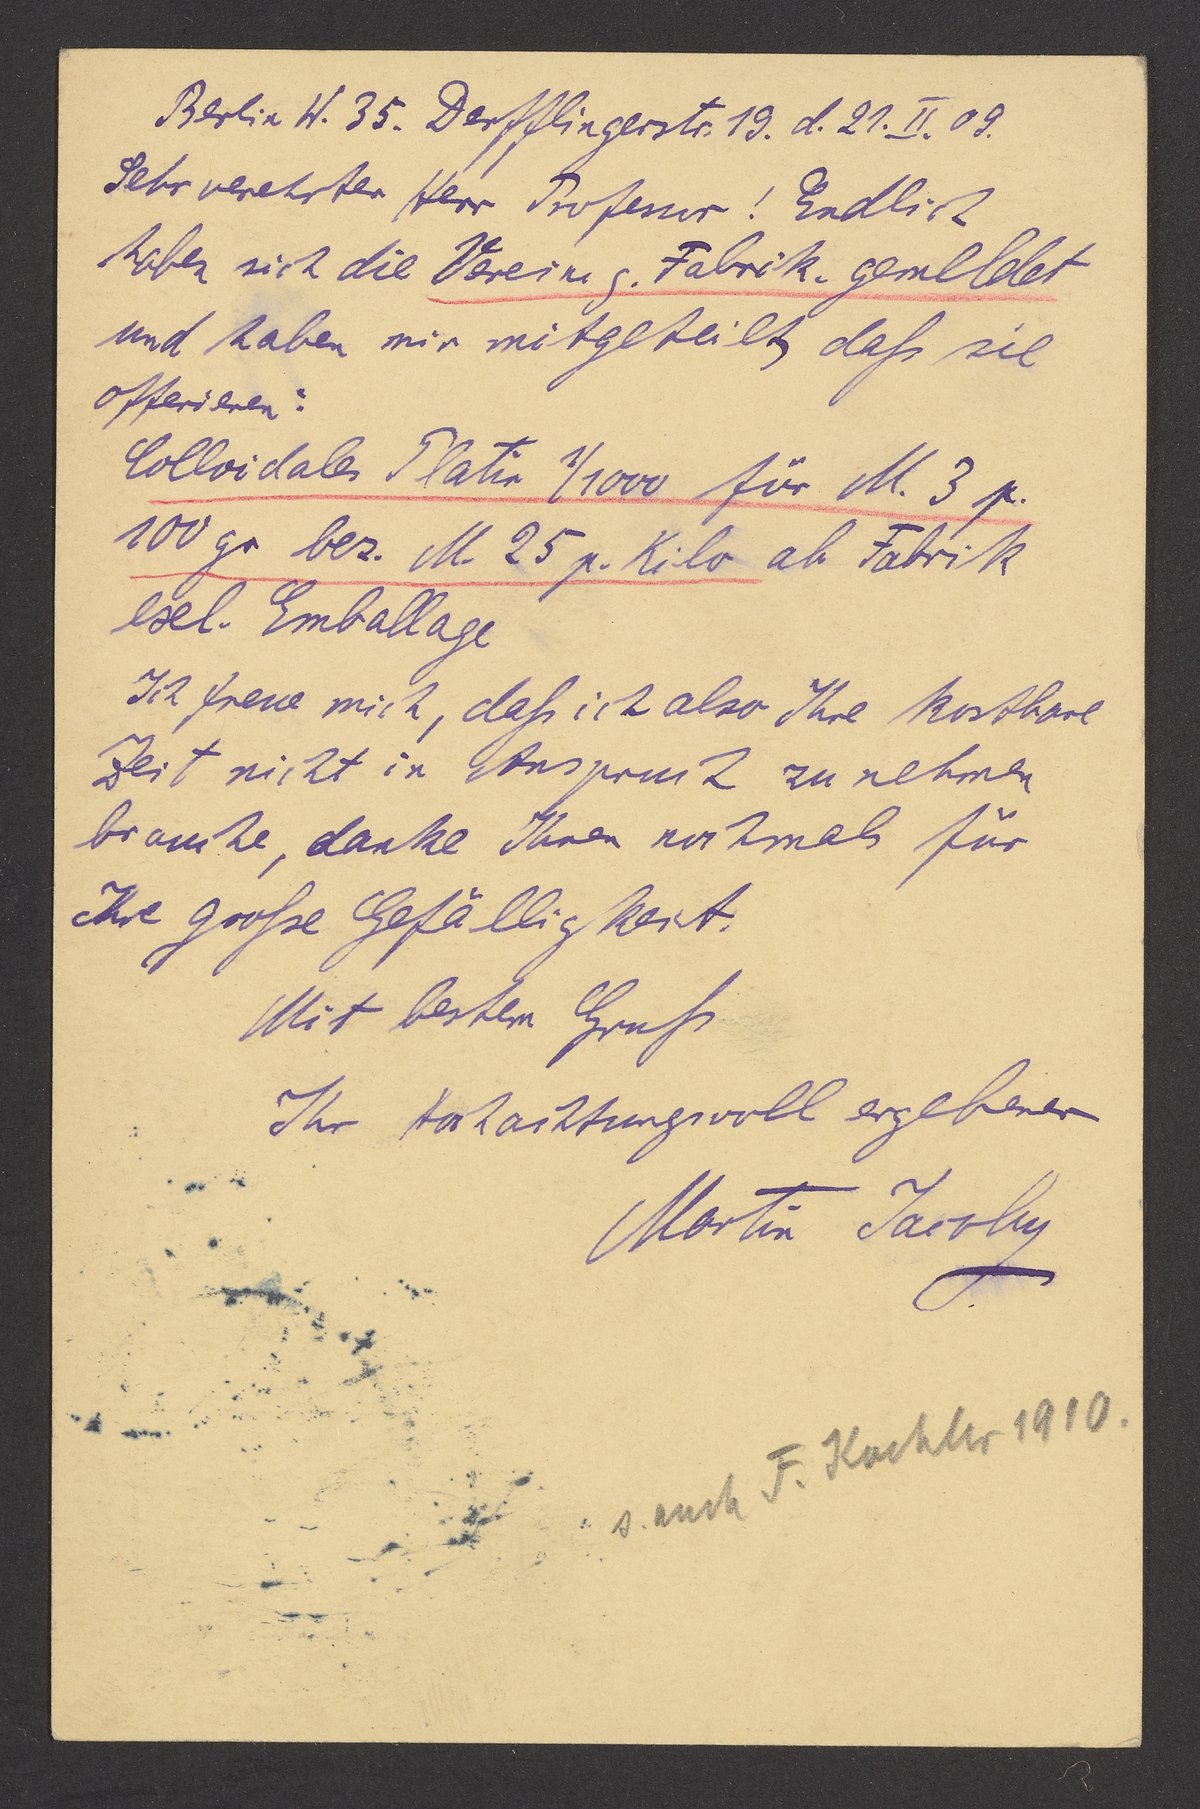 Berlin W. 35. Derfflingerstr. 19. d. 21. II. 09.
Sehr verehrter Herr Professor! Endlich
haben sich die Verein. g. Fabrik. gemeldet
und haben mir mitgeteilt, daß sie
offerieren:
Colloidales Platin 1/1000 für M. 3 p.
100 gr bez. M. 25 p. Kilo ab Fabrik
excl. Emballage
Ich freue mich, daß ich also Ihre kostbare
Zeit nicht in Anspruch zu nehmen
brauche, danke Ihnen nochmals für
Ihre große Gefälligkeit.
Mit bestem Gruß
Ihr hochachtungsvoll ergebener
Martin Jacoby
s. auch F. Koehler 1910.